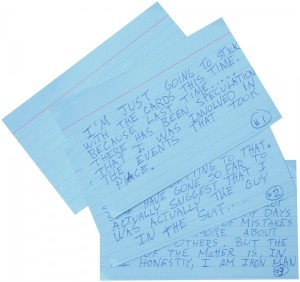 I'M JUST GOING TO STICK
WITH THE CARDS THIS TIME.
BECAUSE THERE
HAS BEEN SPECULATION
THAT I WAS INVOLVED IN
THE EVENTS THAT TOOK
PLACE.
#1
GOING TO THAT.
HAVE GONE SO FAR TO
ACTUALLY SUGGEST THAT I
WAS ACTUALLY THE GUY
IN THE SUIT.....
#2
MY DAYS
OF MISTAKES
MORE ABOUT
OTHERS. BUT THE
OF THE MATTER IS, IN
HONESTLY, I AM IRON MAN
#3